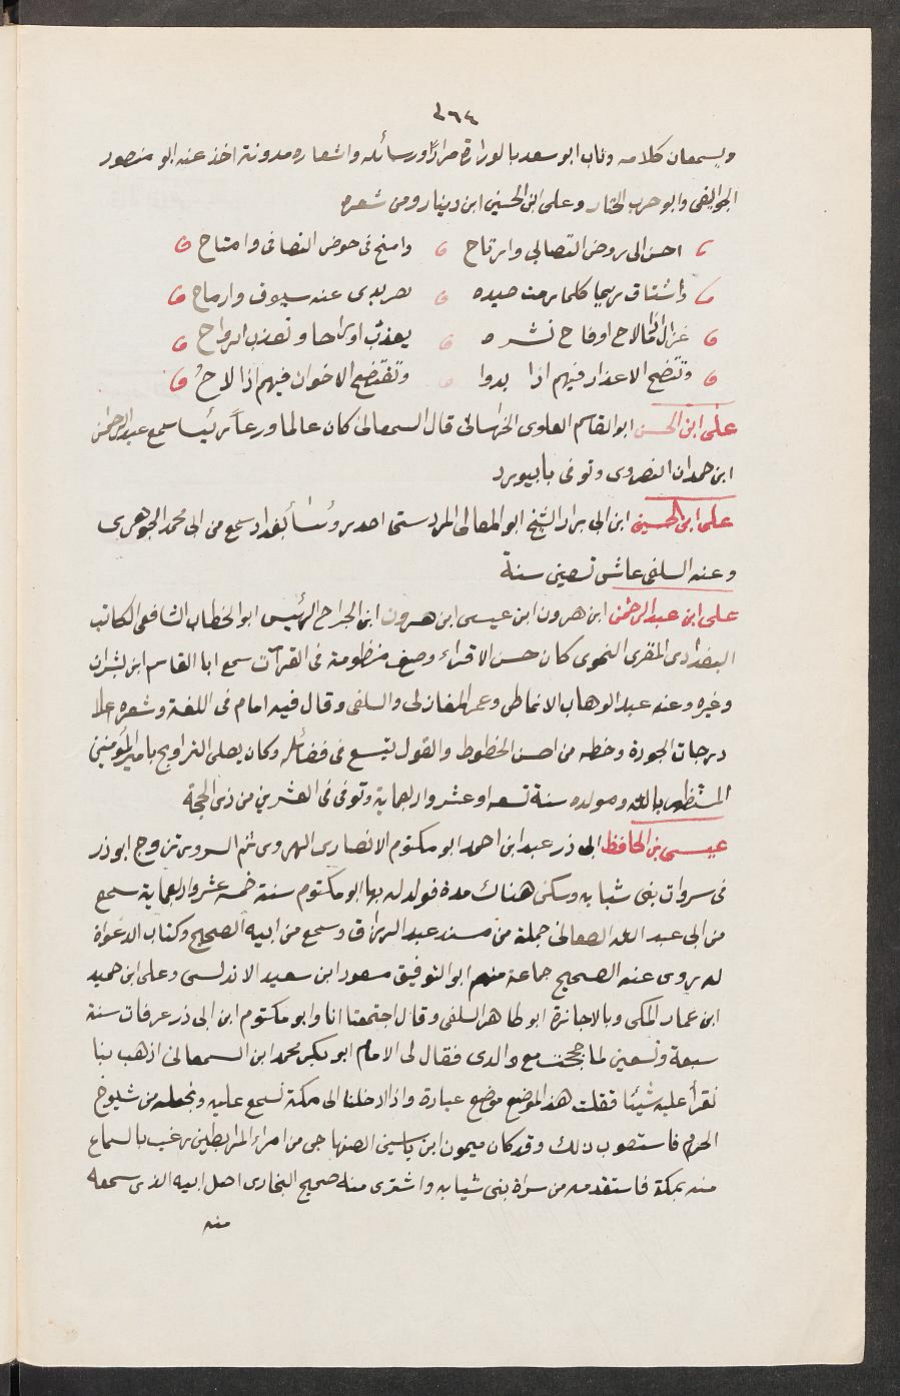 ٢٦٤
ويسمعان كلامه وناب ابو سعد بالوزارة مرارًا ورسائله واشعاره مدونة اخذ عنه ابو منصور
الجواليقى وابو حرب الختار وعلى ابن الحسين ابن دينار ومن شعره
احن الى روض التصابى وارتاح وامتح فى حوض التصافى وامتاح
واشتاق ريما كلما رمت صيده تصد يدى عنه سيوف وارماح
غزال اذا مالاح اوفاح نشره يعذب ارواحا وتعذب ارواح
وتتضح الاعذار فيهم اذا بدوا وتفتضح الاخوان فيهم اذا لاحُ
على ابن الحسن ابو القاسم العلوى الخراسانى قال السمعانى كان عالما ورعاً رئيسا سمع عبد الرحمن
ابن حمدان النصروى وتوفى بابيورد
على ابن الحسين ابن ابى نزار الشيخ ابو المعالى المردستى احد رؤسا بغداد سمع من ابى محمد الجوهرى
وعنه السلفى عاش تسعين سنة
على ابن عبد الرحمن ابن هرون ابن عيسى ابن هرون ابن الجراح الرئيس ابو الخطاب الشافعى الكاتب
البغدادى المقرى النحوى كان حسن الاقراء وصنف منظومة فى القرآت سمع ابا القاسم ابن بشران
وغيره وعنه عبد الوهاب الانماطى وعمر المغازلى والسلفى وقال فيه امام فى اللغة وشعره اعلا
درجات الجودة وخطه من احسن الخطوط والقول يتسع فى فضائله وكان يصلى التراويح بامير المؤمنين
المستظهر بالله ومولده سنة تسعه او عشر واربعماية وتوفى فى العشرين من ذى الحجة
عيسى بن الحافظ ابى ذر عبد ابن احمد ابو مكتوم الانصارى الهروى ثم السروى تزوج ابو ذر
فى سروات بنى شبابه وسكن هناك مدة فولد له بها ابو مكتوم سنة خمسة عشر واربعماية سمع
من ابى عبد الله الصنعانى جملة من مسند عبد الرزاق وسمع من ابيه الصحيح وكتاب الدعواة
له يروى عنه الصحيح جماعة منهم ابو التوفيق مسعود ابن سعيد الاندلسى وعلى ابن حميد
ابن عمار المكى وبالاجازة ابو طاهر السلفى وقال اجتمعنا انا وابو مكتوم ابن ابى ذر عرفات سنة
سبعة وتسعين لما حججت مع والدى فقال لى الامام ابو بكر محمد ابن السمعانى اذهب بنا
نقرأ عليه شيئا فقلت هذ الموضع موضع عبادة واذا دخلنا الى مكة نسمع عليه ونجعله من شيوخ
الحرم فاستصوب ذلك وقد كان ميمون ابن ياسين الصنهاجى من امراء المرابطين رغب بالسماع
منه بمكة فاستقدمه من سراة بنى شبابه واشترى منه صحيح البخارى اصل ابيه الذى سمعه
منه